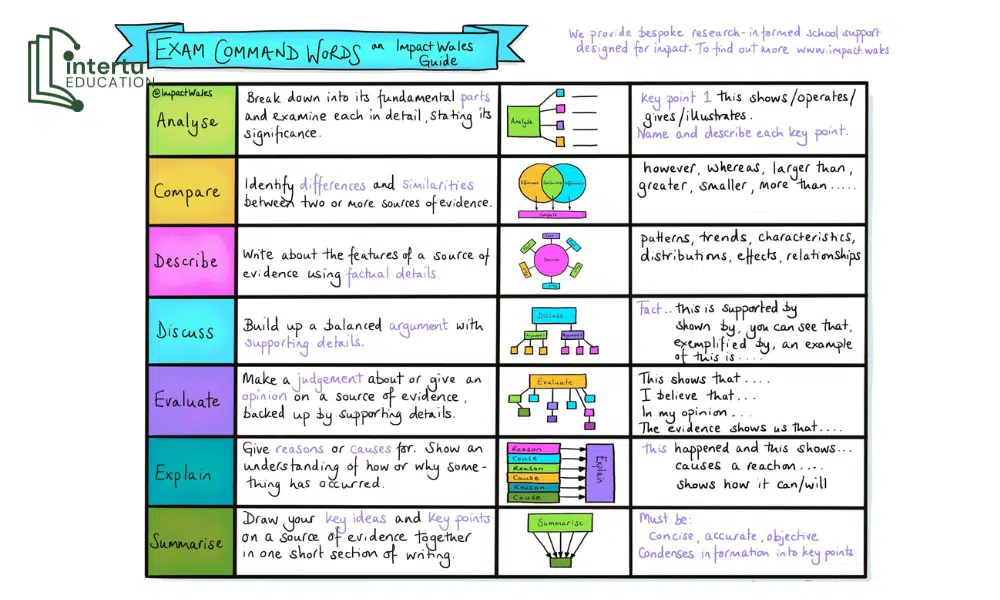 EXAM COMMAND WORDS an Impact Wales
Guide
We provide bespoke research-informed school support
designed for impact. To find out more www.impact.wales
intertu
EDUCATION
@ImpactWales
Analyse
Break down into its fundamental parts
and examine each in detail, stating its
significance.
Analyse
Key point 1 this shows/operates/
gives/illustrates.
Name and describe each key point.
Compare
Identify differences and similarities
between two or more sources of evidence.
Compare
however, whereas, larger than,
greater, smaller, more than.....
Describe
Write about the features of a source of
evidence using factual details.
Describe
patterns, trends, characteristics,
distributions, effects, relationships
Discuss
Build up a balanced argument with
supporting details.
Discuss
Fact.. this is supported by
shown by, you can see that,
exemplified by, an example
of this is....
Evaluate
Make a judgement about or give an
opinion on a source of evidence,
backed up by supporting details.
Evaluate
This shows that....
I believe that...
In my opinion...
The evidence shows us that....
Explain
Give reasons or causes for. Show an
understanding of how or why some-
thing has occurred.
Reason
Cause
Reason
Cause
Reason
Cause
Explain
this happened and this shows...
causes a reaction....
shows how it can/will
Summarise
Draw your key ideas and key points
on a source of evidence together
in one short section of writing.
Summarise
Must be:
Concise, accurate, objective
Condenses information into key points